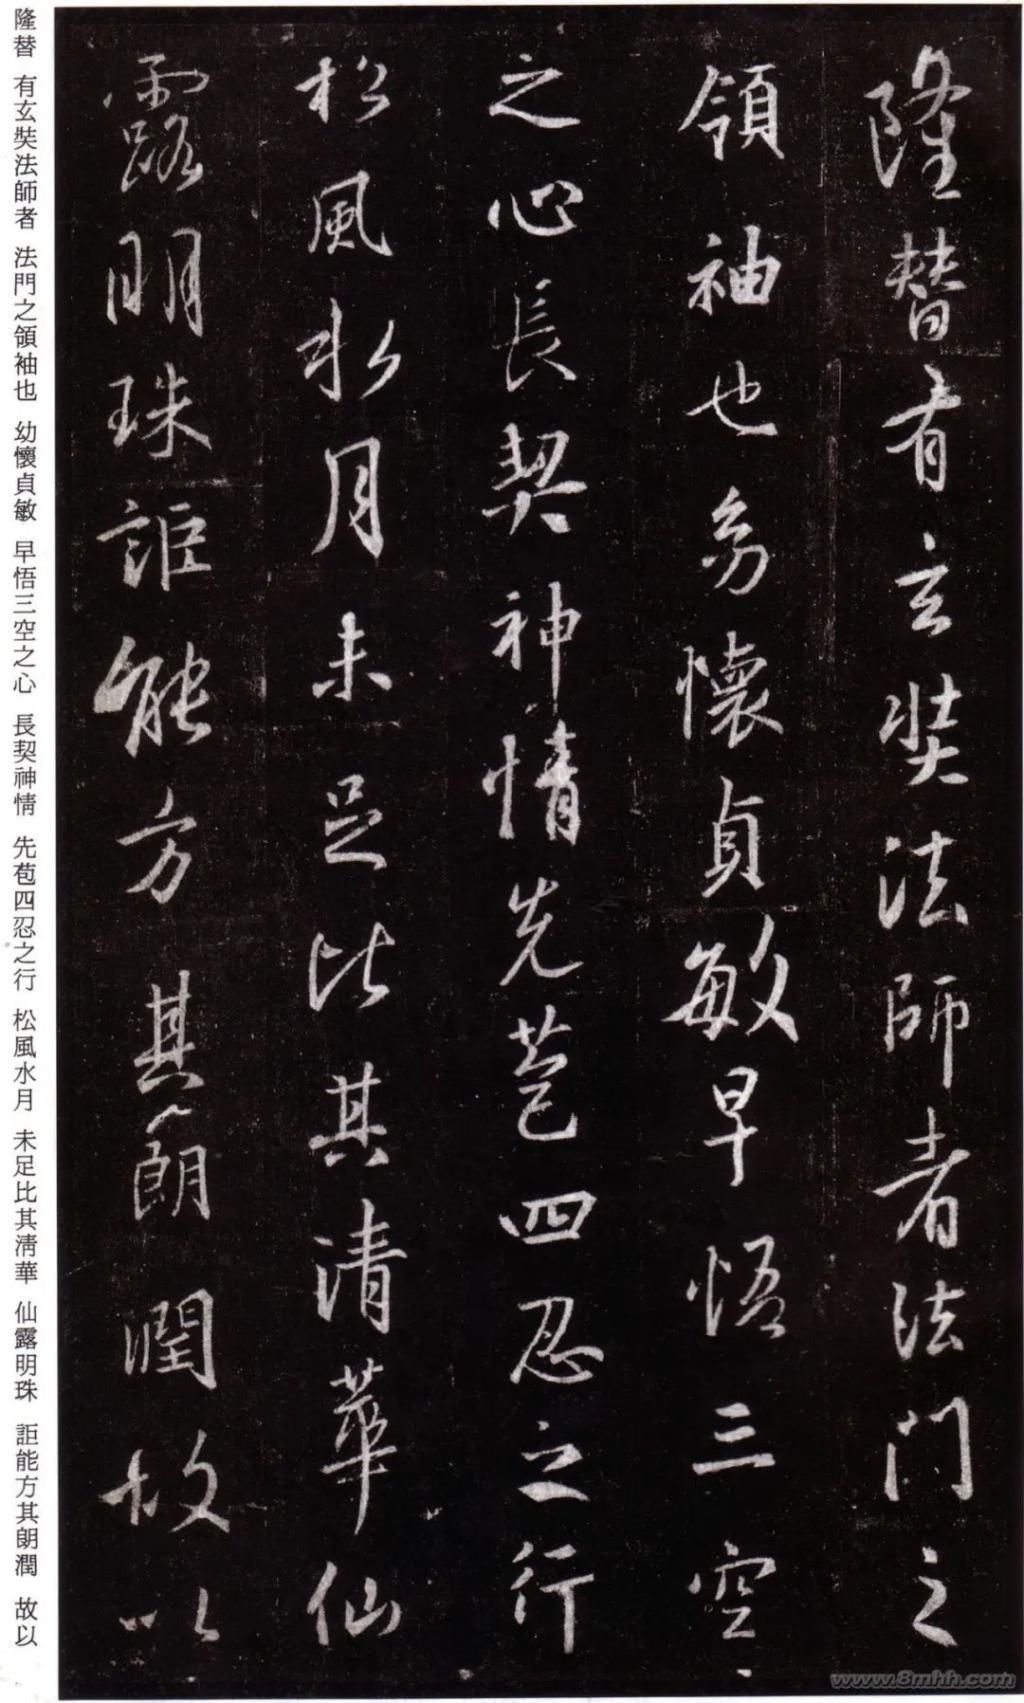 隆替有玄奘法師者法門之
領袖也幼懷貞敏早悟三空
之心長契神情先苞四忍之行
松風水月未足比其清華仙
露明珠詎能方其朗潤故以
隆替 有玄奘法師者 法門之領袖也 幼懷貞敏 早悟三空之心 長契神情 先苞四忍之行 松風水月 未足比其清華 仙露明珠 詎能方其朗潤 故以
www.8mhh.com